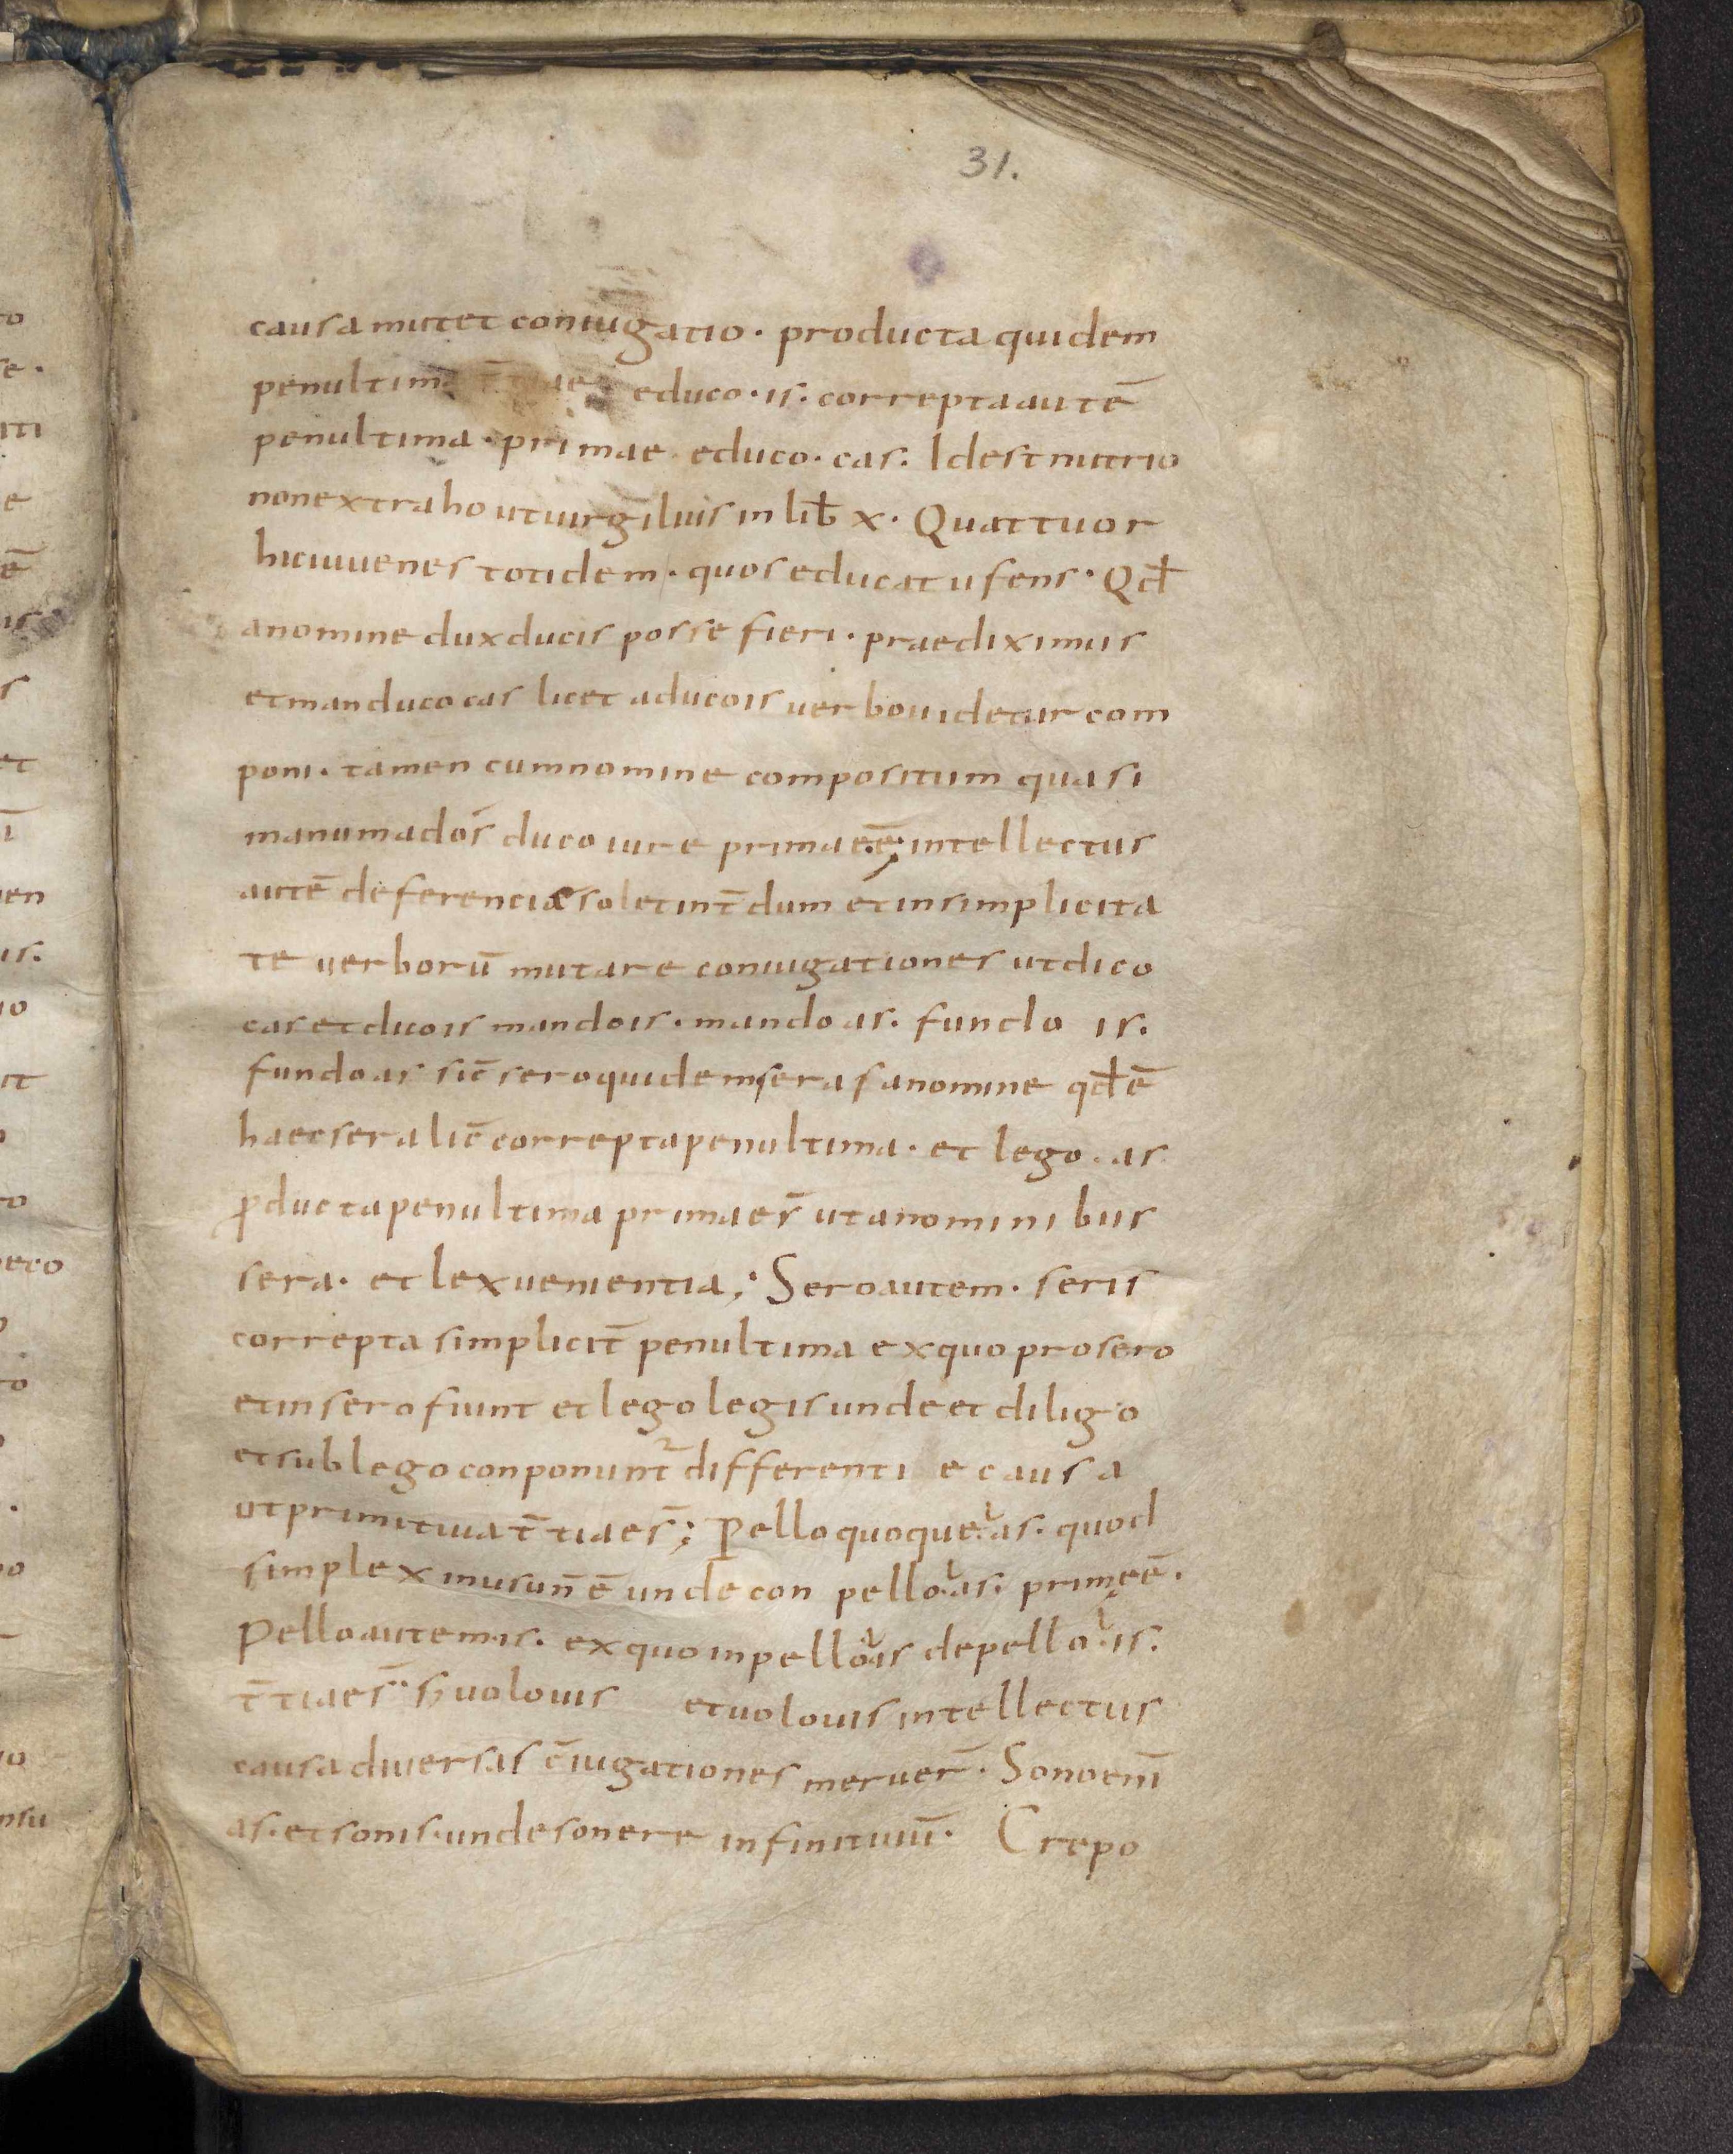 31.
causa mutet coniugatio · producta quidem
penultim educo · is · correpta autē
penultima · primae educo · cas · Id est nutrio
non extraho ut uirgilius in lib̄ x · Quattuor
hic iuuenes totidem · quos educat ufens · Qđ
a nomine dux ducis posse fieri · praediximus
et manduco cas licet a duco is uerbo uidetur com
poni · tamen cum nomine compositum quasi
manum ad os duco iure primae ē · intellectus
autē deferenciae solet int̄dum et in simplicita
te uerborū mutare coniugationes ut dico
cas et duco is mando is · mando as · fundo is ·
fundo as sic̄ sero quidem seras a nomine qđ ē
haec sera lic̄ correpta penultima · et lego · as
ꝓducta penultima primae s̄ ut a nominibus
sera · et lex uenientia ; Sero autem · seris
correpta similicit̄ penultima ex quo prosero
et insero fiunt et lego legis unde et diligo
et sublego conponunt̄ differenti e causa
ut primitiua t̄tiae s̄ ; Pello quoque as · quod
simplex inusun̄ ē unde con pello as · primę ē ·
Pello autem is · ex quo inpello is depello is ·
t̄tiae s̄ · uolo uis et uolo uis intellectus
causa diuersis c̄iugationes meruer̄ · Sono eni̅
as · et sonis · unde sonere infinitiuū · Crepo